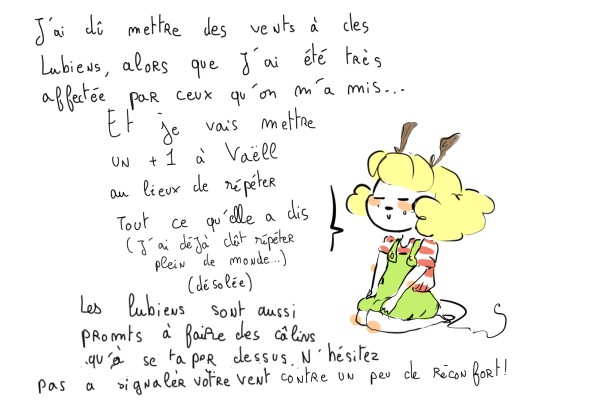 J'ai dû mettre des vents à des
Lubiens, alors que J'ai été très
affectée par ceux qu'on m'a mis...
Et je vais mettre
un +1 à Vaëll
au lieux de répéter
Tout ce qu'elle a dis
(J'ai déjà dût répéter
plein de monde...)
(désolée)
Les lubiens sont aussi
promts à faire des câlins
qu'à se taper dessus. N'hésitez
pas a signaler vôtre vent contre un peu de réconfort!